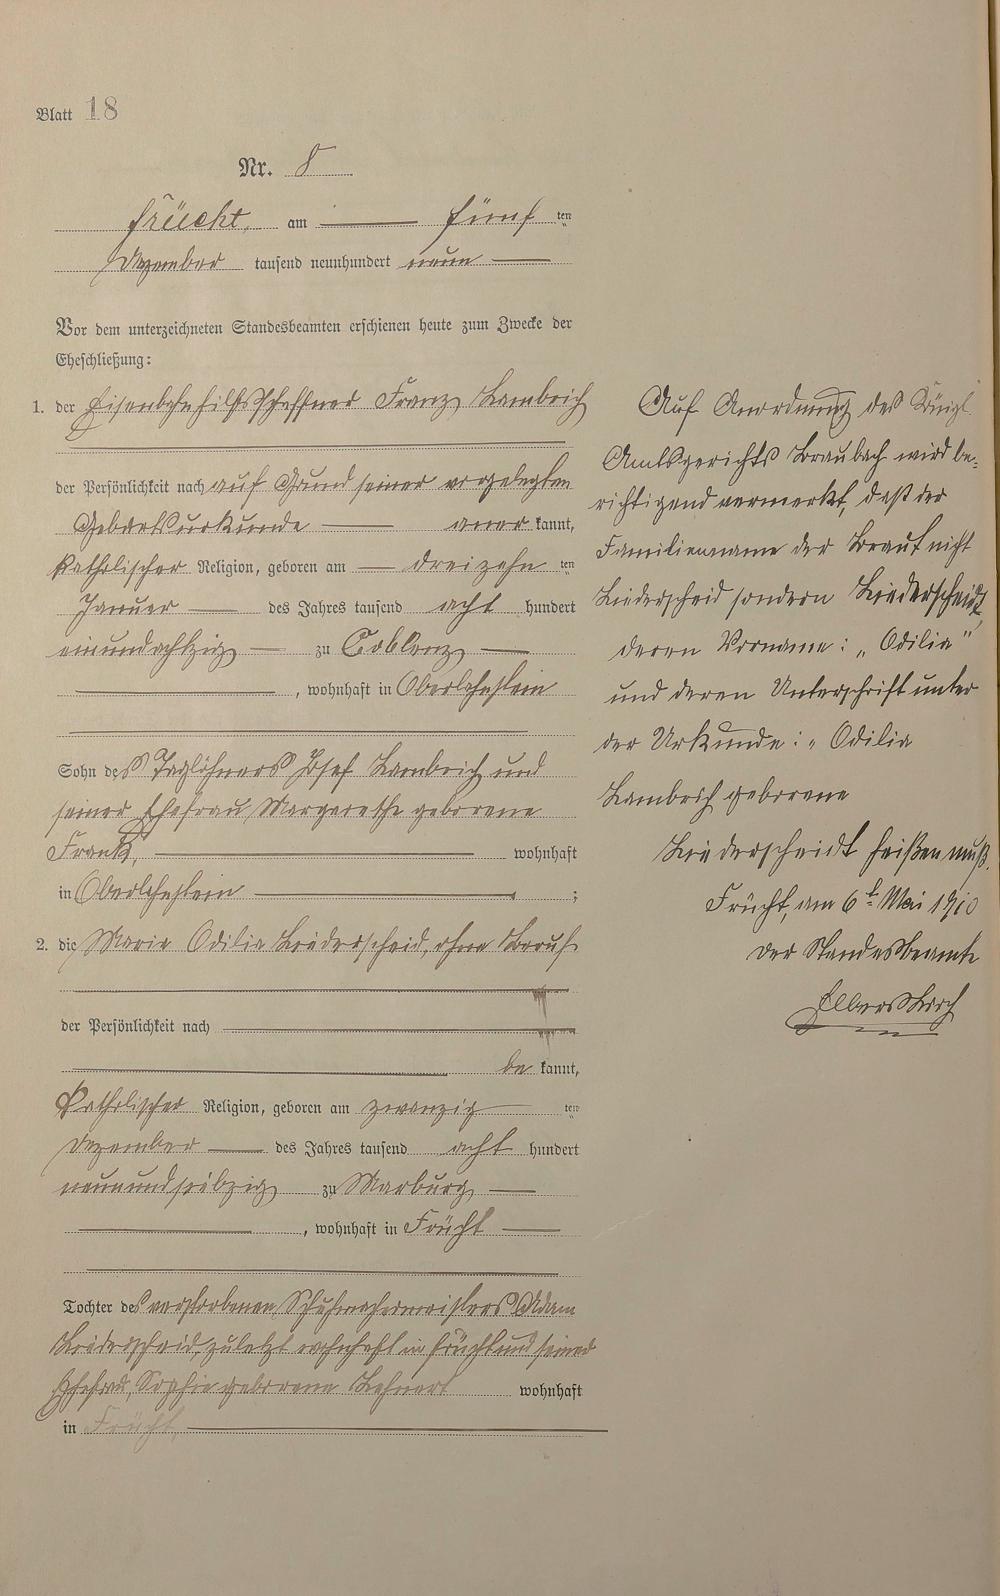 Blatt 18
Nr. 8
Frücht, am fünf ten
Dezember tausend neunhundert neun
Vor dem unterzeichneten Standesbeamten erschienen heute zum Zwecke der
Eheschließung:
1. der Eisenbahnhilfsschaffner Franz Lambrich
der Persönlichkeit nach auf Grund seiner vorgelegten
Geburtsurkunde aner kannt,
katholischer Religion, geboren am dreizehn ten
Januar des Jahres tausend acht hundert
einundachtzig zu Coblenz
, wohnhaft in Oberlahnstein
Sohn des Taglöhners Josef Lambrich und
seiner Ehefrau Margarethe geborene
Frank, wohnhaft
in Oberlahnstein ;
2. die Maria Odilia Liederscheid, ohne Beruf
der Persönlichkeit nach
be kannt,
katholischer Religion, geboren am zwanzig ten
Dezember des Jahres tausend acht hundert
neunundsiebzig zu Marburg
, wohnhaft in Frücht
Tochter des verstorbenen Schuhmachermeisters Adam
Liederscheid, zuletzt wohnhaft in Frücht und seiner
Ehefrau, Sophie geborene Lehnert wohnhaft
in Frücht,
Auf Anordnung des Königl.
Amtsgerichts Braubach wird be-
richtigend vermerkt, daß der
Familienname der Braut nicht
Liederscheid sondern Liederscheidt,
deren Vorname: „Odilia"
und deren Unterschrift unter
der Urkunde: „Odilia
Lambrich geborene
Liederscheidt heißen muß.
Frücht, am 6t. Mai 1910
Der Standesbeamte
Elberskirch